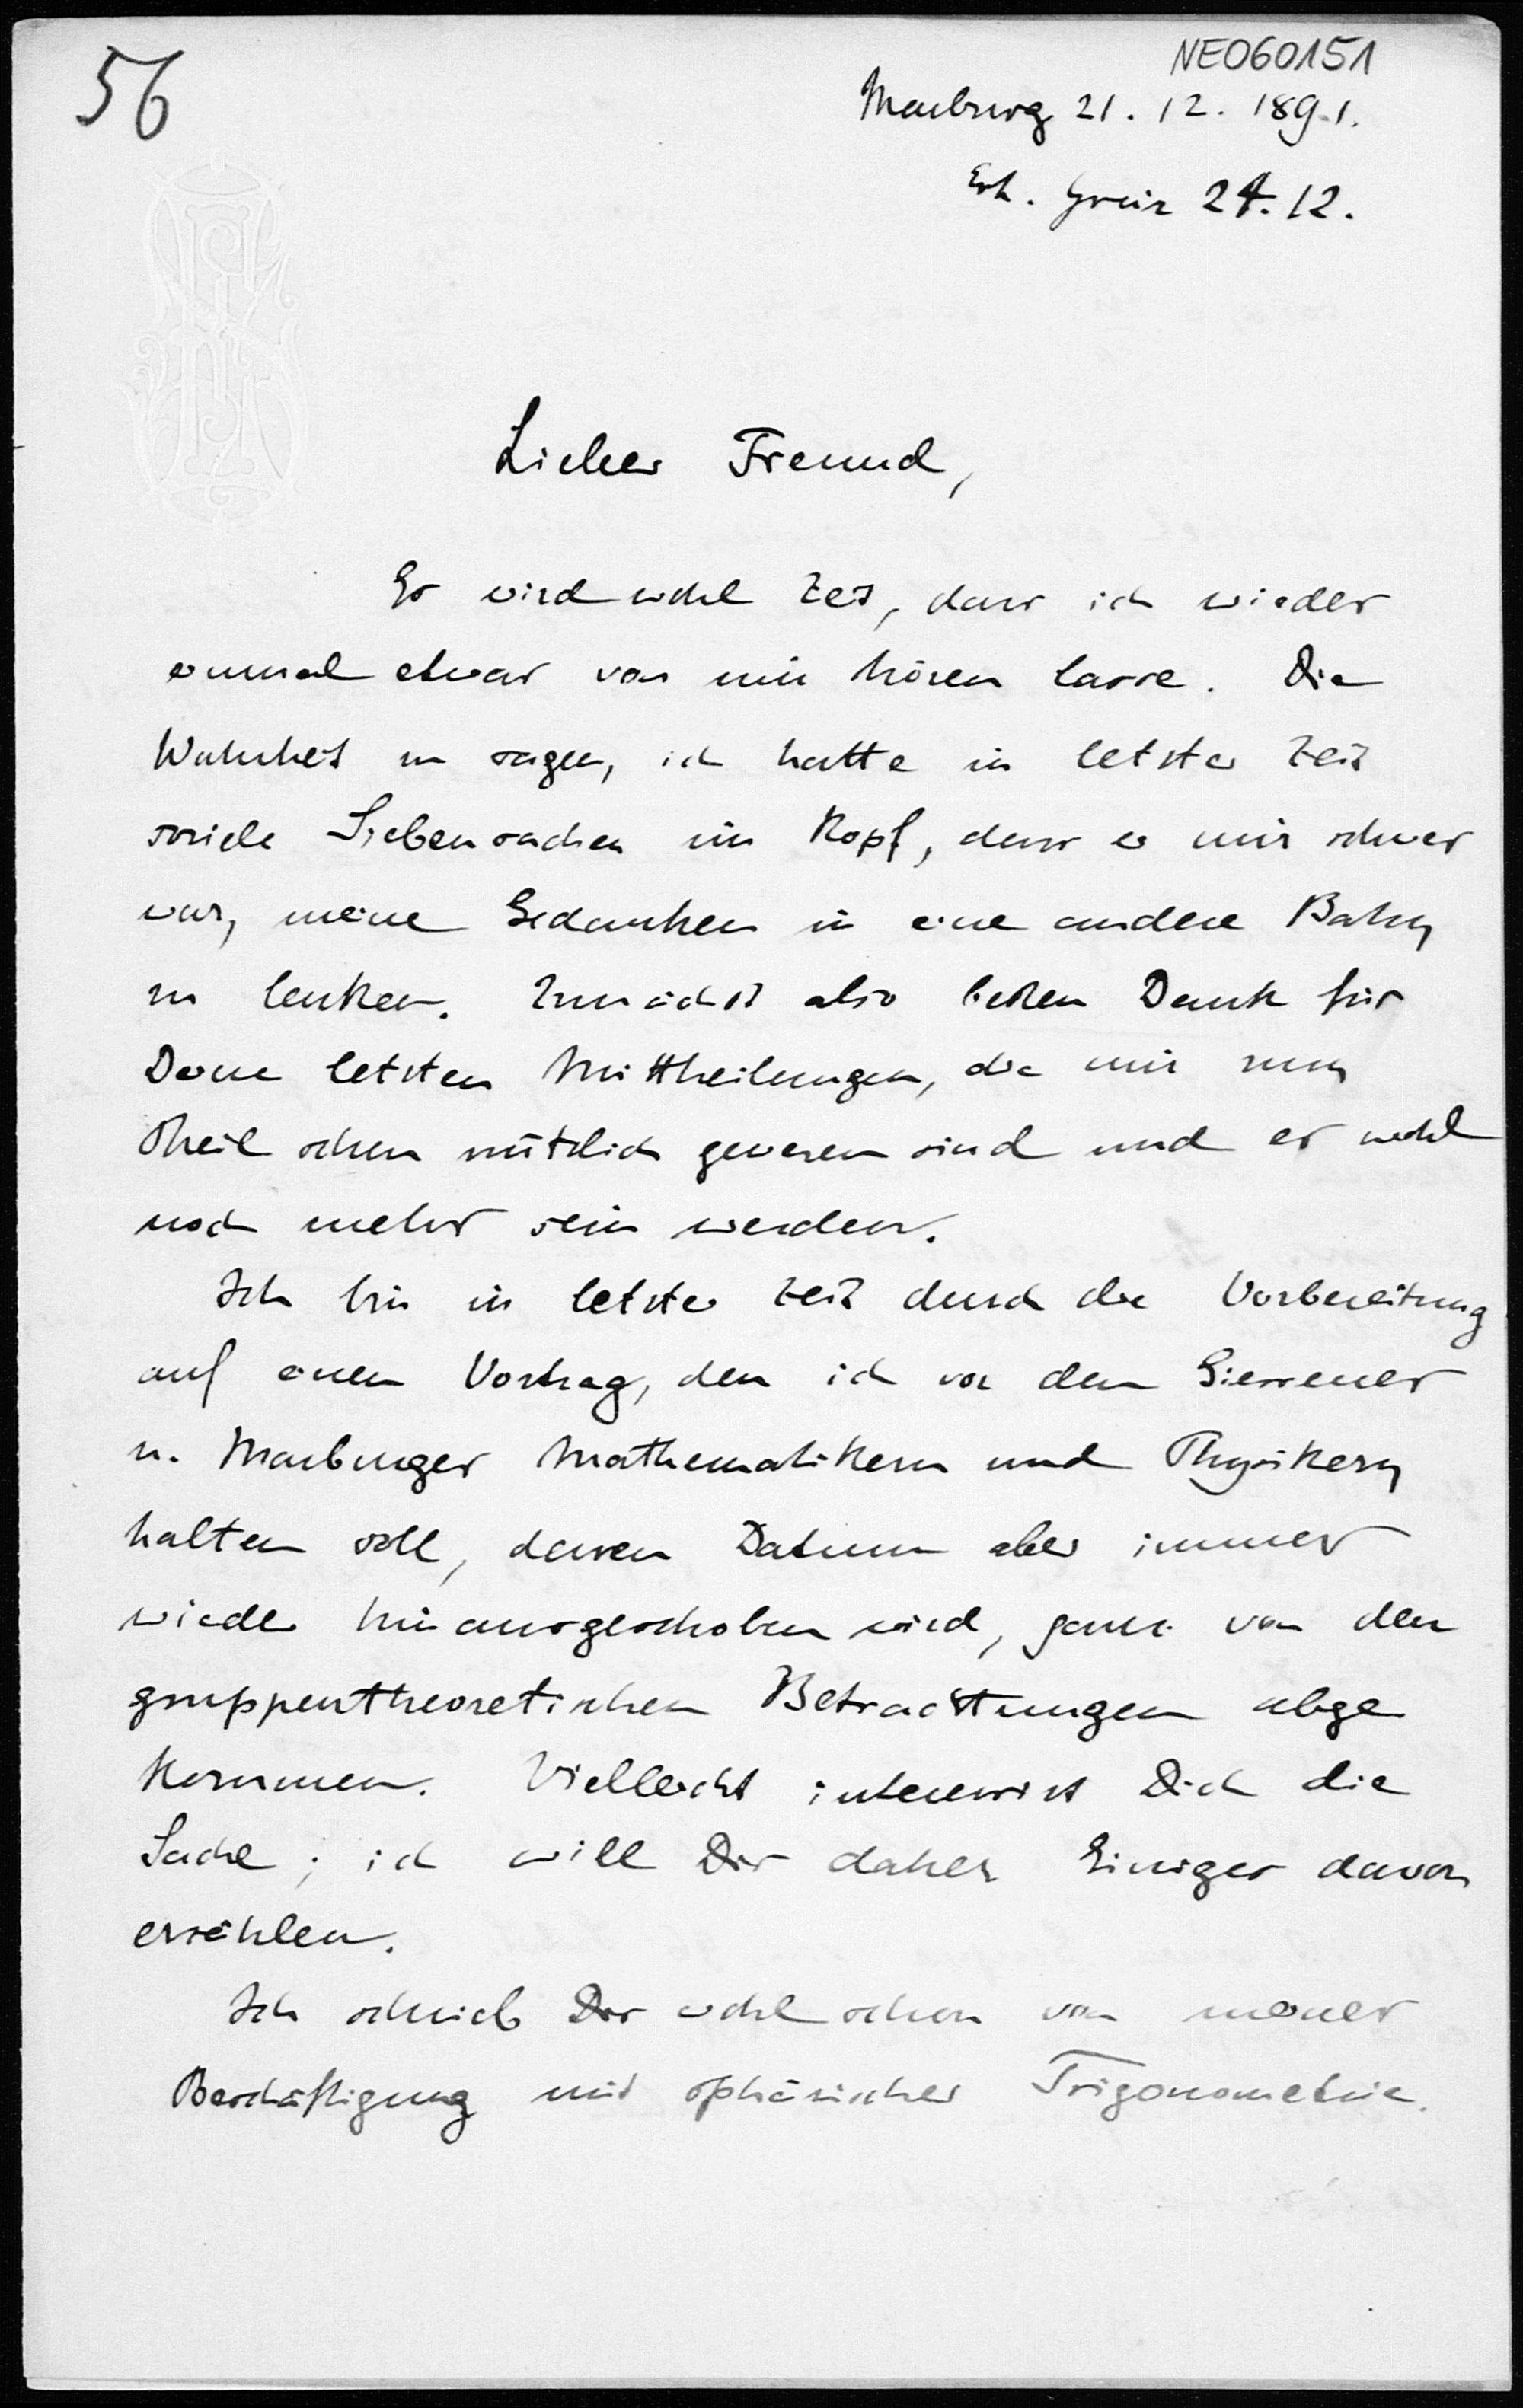 56
NEO60151
Marburg 21. 12. 1891.
Erh. Greiz 24. 12.
Lieber Freund,
Es wird wohl Zeit, dass ich wieder
einmal etwas von mir hören lasse. Die
Wahrheit zu sagen, ich hatte in letzter Zeit
soviele Siebensachen im Kopf, dass es mir schwer
war, meine Gedanken in eine andere Bahn
zu lenken. Zunächst also besten Dank für
Deine letzten Mittheilungen, die mir zum
Theil schon nützlich gewesen sind und es wohl
noch mehr sein werden.
Ich bin in letzter Zeit durch die Vorbereitung
auf einen Vortrag, den ich vor den Giessener
u. Marburger Mathematikern und Physikern
halten soll, dessen Datum aber immer
wieder hinausgeschoben wird, ganz von den
gruppentheoretischen Betrachtungen abge
kommen. Vielleicht interessirt Dich die
Sache; ich will Dir daher Einiges davon
erzählen.
Ich schrieb Dir wohl schon von meiner
Beschäftigung mit sphärischer Trigonometrie.